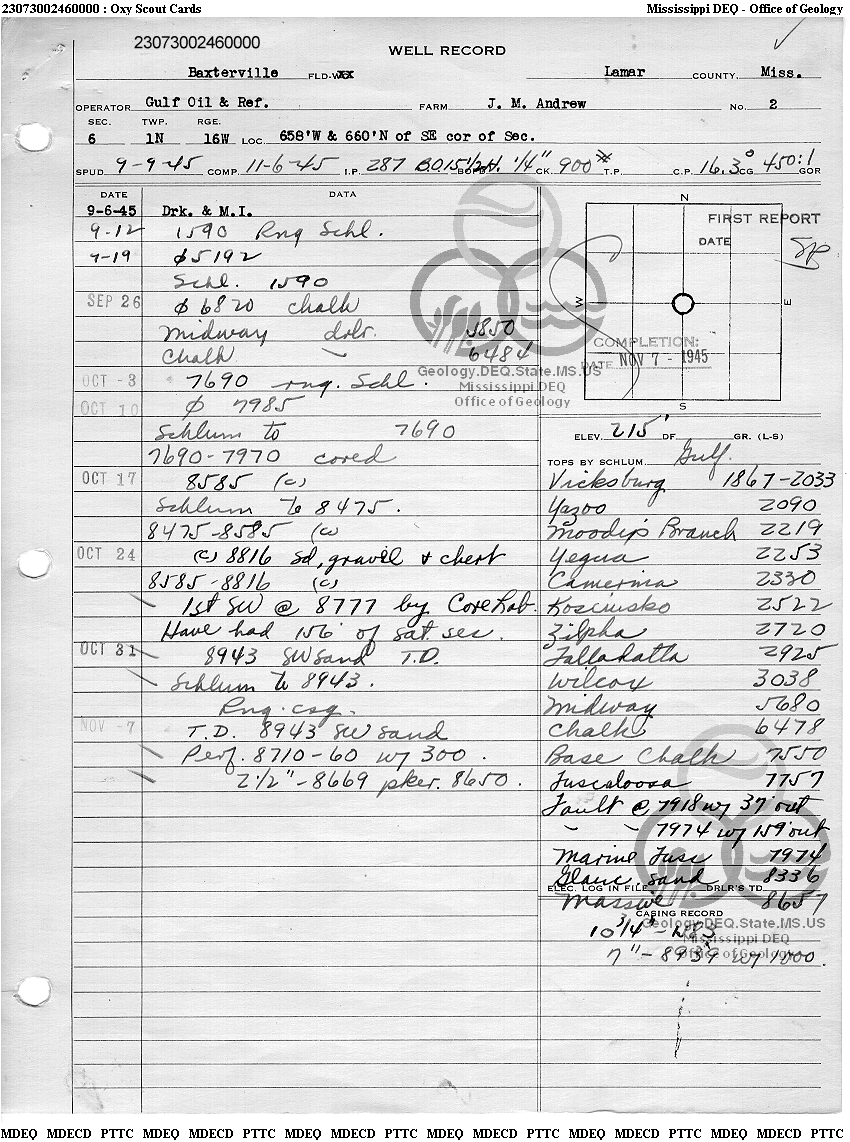 23073002460000 : Oxy Scout Cards Mississippi DEQ - Office of Geology
23073002460000
WELL RECORD
Baxterville FLD-W Lamar COUNTY, Miss.
OPERATOR Gulf Oil & Ref. FARM J. M. Andrew No. 2
SEC. TWP. RGE.
6 1N 16W LOC. 658'W & 660'N of SE cor of Sec.
SPUD. 9-9-45 COMP. 11-6-45 I.P. 287 B.O. 15 1/2 H. 1/4" CK. 900# T.P. C.P. 16.3° CG. 450:1 GOR
DATE DATA
9-6-45 Drk. & M.I.
9-12 1590 Rng Schl.
9-19 ϕ 5192
Schl. 1590
SEP 26 ϕ 6820 chalk
Midway drlr. 5850
Chalk " 6484
OCT -3 7690 rng. Schl.
OCT 10 ϕ 7985
Schlum to 7690
7690-7970 cored
OCT 17 8585 (c)
Schlum to 8475.
8475-8585 (c)
OCT 24 (c) 8816 sd, gravel & chert
8585-8816 (c)
1st SW @ 8777 by Core Lab.
Have had 156' of sat. ses.
OCT 31 8943 SW sand T.D.
Schlum to 8943.
Rng. csg.
NOV -7 T.D. 8943 SW sand
Perf. 8710-60 w/ 300.
2 1/2" - 8669 pker. 8650.
N
FIRST REPORT
DATE
W E
COMPLETION:
DATE NOV 7 - 1945
S
Geology.DEQ.State.MS.US
Mississippi DEQ
Office of Geology
ELEV. 215' DF GR. (L-S)
TOPS BY SCHLUM. Gulf.
Vicksburg 1867-2033
Yazoo 2090
Moody's Branch 2219
Yegua 2253
Camerina 2330
Kosciusko 2522
Zilpha 2720
Tallahatta 2925
Wilcox 3038
Midway 5680
Chalk 6478
Base Chalk 7550
Tuscaloosa 7757
Fault @ 7918 w/ 37' out
" " 7974 w/ 159' out
Marine Tusc 7974
Glauc sand 8336
ELEC. LOG IN FILE DRLR'S TD
Massive 8657
CASING RECORD
10 3/4" -
7" - w/ 1000.
Geology.DEQ.State.MS.US
Mississippi DEQ
Office of Geology
MDEQ MDECD PTTC MDEQ MDECD PTTC MDEQ MDECD PTTC MDEQ MDECD PTTC MDEQ MDECD PTTC MDEQ MDECD PTTC